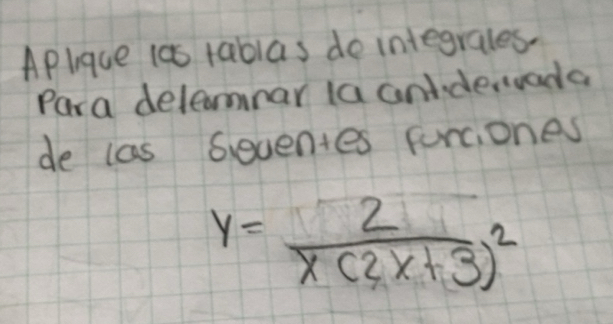 Aplique las tablas de integrales
Para determinar la antiderivada
de las siguentes funciones
y = 2 / x(2x+3)²